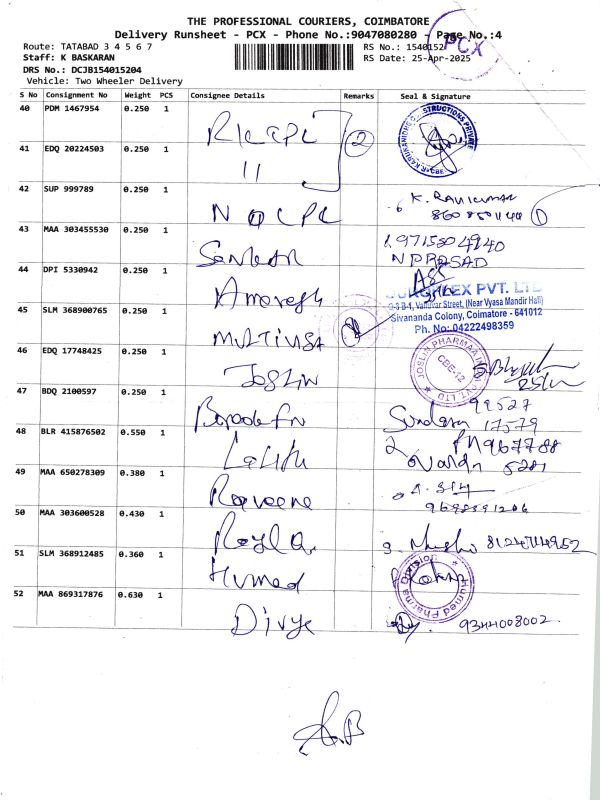 THE PROFESSIONAL COURIERS, COIMBATORE
Delivery Runsheet - PCX - Phone No.:9047080280 - Page No.:4
PCX
Route: TATABAD 3 4 5 6 7
RS No.: 1540152
Staff: K BASKARAN
RS Date: 25-Apr-2025
DRS No.: DCJB154015204
Vehicle: Two Wheeler Delivery
S No Consignment No Weight PCS Consignee Details Remarks Seal & Signature
40 PDM 1467954 0.250 1
2
41 EDQ 20224503 0.250 1
11
42 SUP 999789 0.250 1
K. RAVIKUMAR
43 MAA 303455530 0.250 1
Santosh
9715504940
N PRASAD
44 DPI 5330942 0.250 1
Amaresh
PVT. LTD
Street, (Near Vyasa Mandir Hall)
Sivananda Colony, Coimatore - 641012
Ph. No: 04222498359
45 SLM 368900765 0.250 1
MULTIVISTA
46 EDQ 17748425 0.250 1
Joslin
JOSLIN PHARMAA
CBE-12
47 BDQ 2100597 0.250 1
99527
17579
48 BLR 415876502 0.550 1
Lalith
PH 967788
5281
49 MAA 650278309 0.380 1
Raveena
50 MAA 303600528 0.430 1
51 SLM 368912485 0.360 1
Humed
Humed Pharma Division
52 MAA 869317876 0.630 1
Divya
9344008002